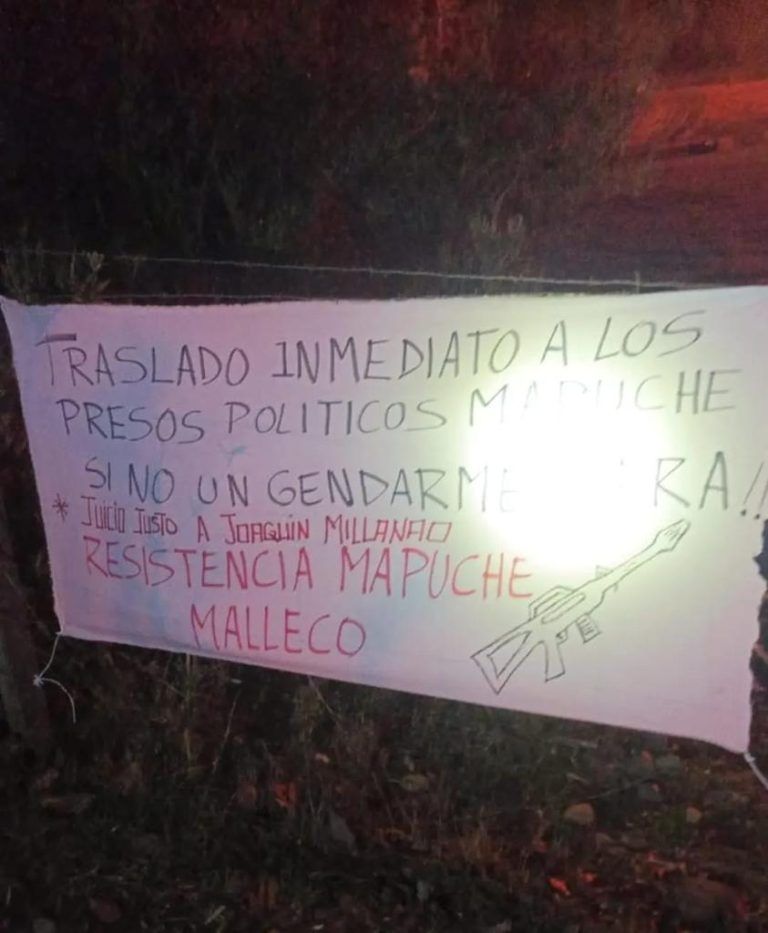 TRASLADO INMEDIATO A LOS
PRESOS POLITICOS MAPUCHE
SI NO UN GENDARME
* JUICIO JUSTO A JOAQUIN MILLANAO
RESISTENCIA MAPUCHE
MALLECO